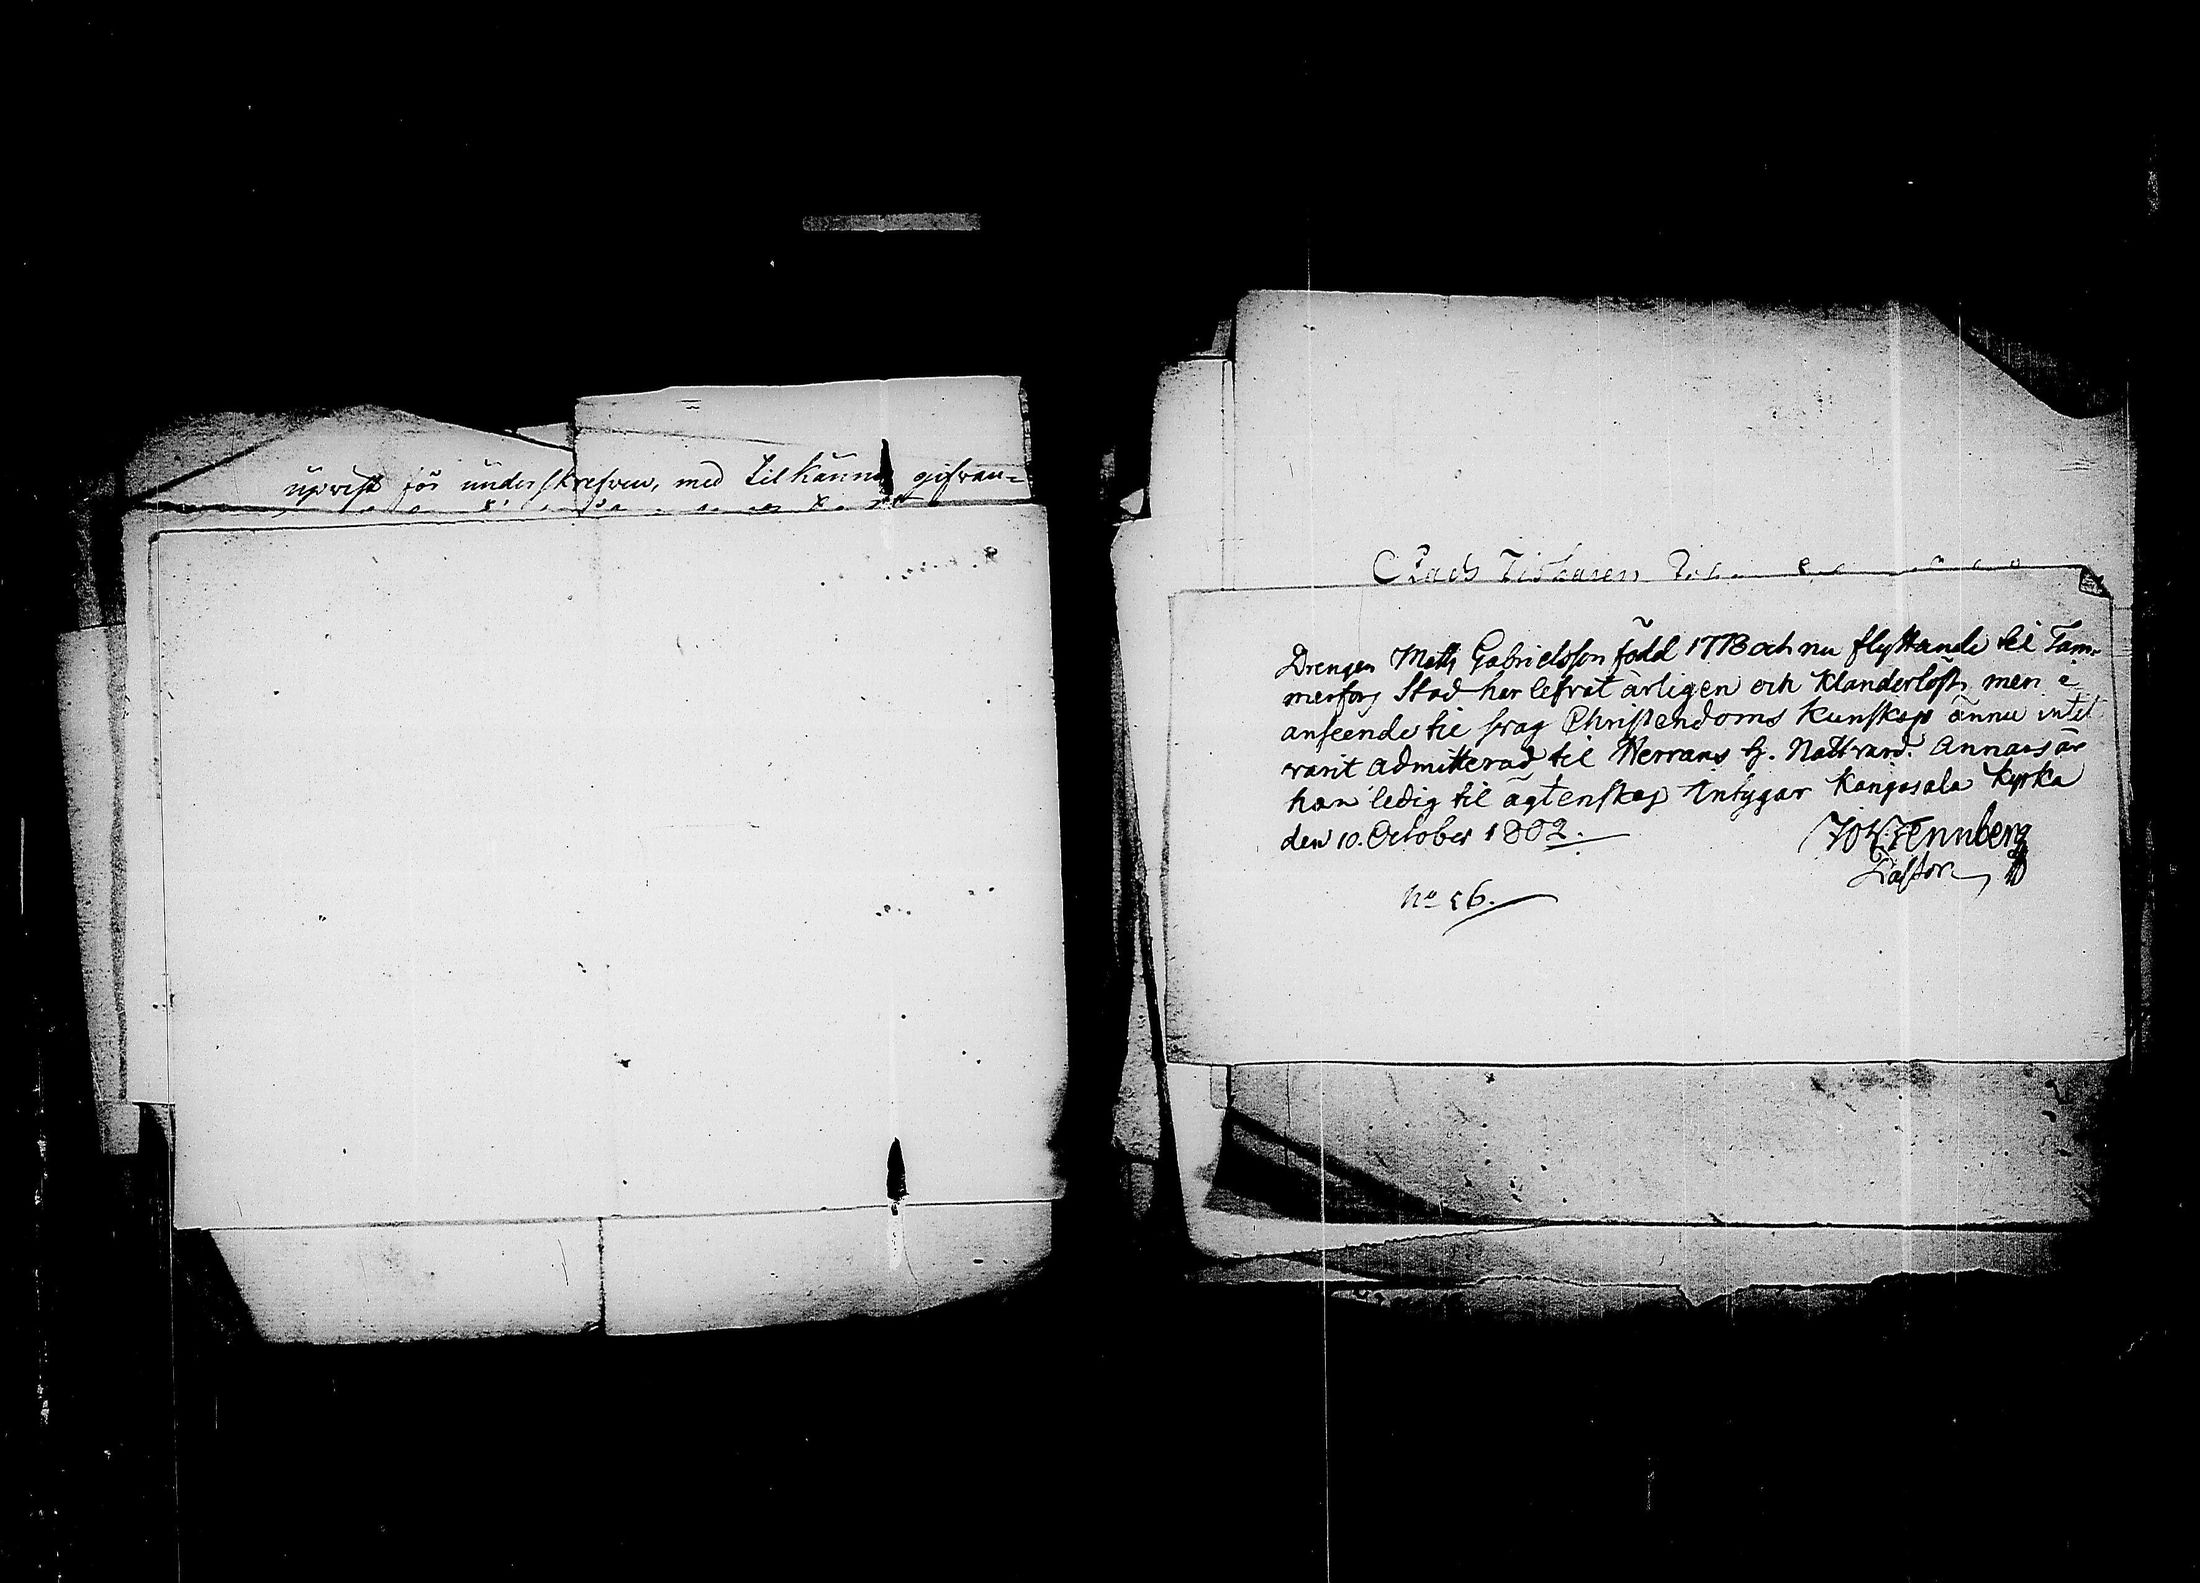 upvist för underskrefven, med tilkänna gifvan=
Drengen Matts Gabrielsson född 1778 och nu flyttande til Tam-
merfors Stad har lefvat ärligen och klanderlöst, men i
anseende til svag Christendoms kunskap ännu intet
varit admitterad til Herrans H. Nattvard. Annars är
han ledig til ägtenskap Intygar Kangasala Kyrka
den 10. October 1802.
Tennberg
Pastor
No 56.